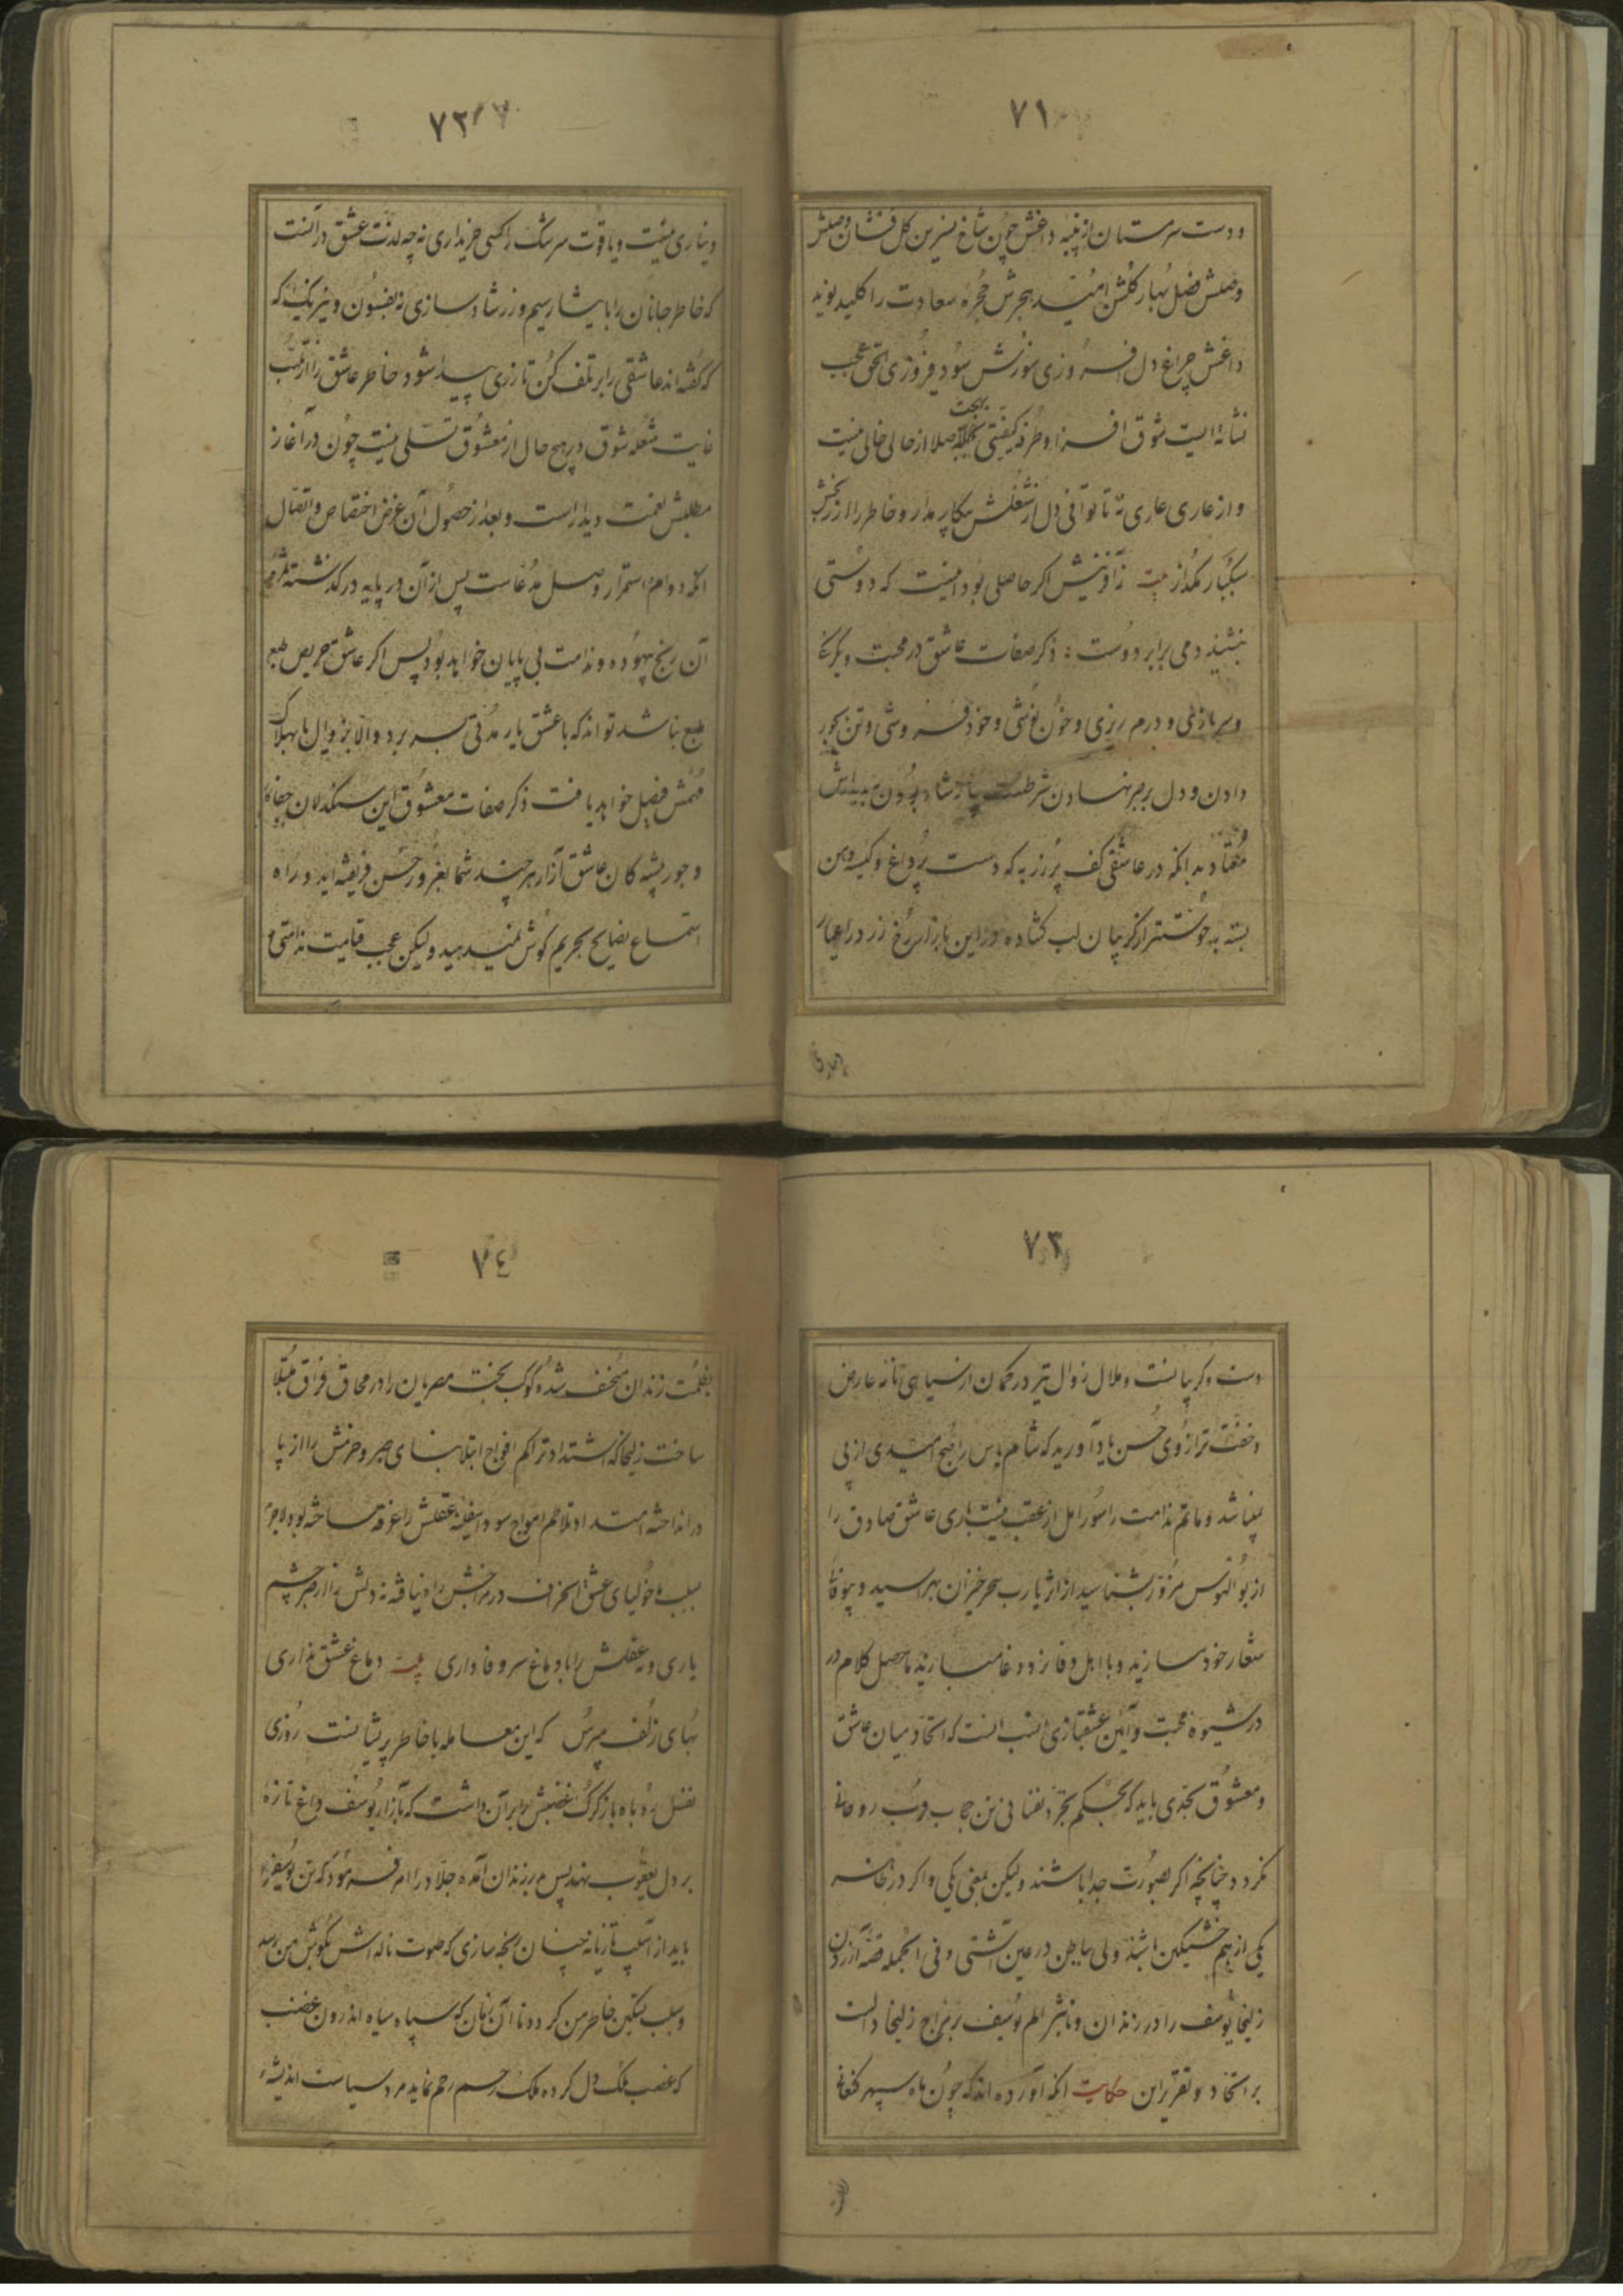 ۷۱
ودست سرمستان از پنبه داغش چون شاخ نسرین گل فشان وصلش
وصلش فصل بهار گلشن امید هجرش حجره سعادت را کلید نوید
داغش چراغ دل افروزی سوزش سود فیروزی الحق عجب
نشانه ایست شوق افزا و طرفه کیفیتی بهجت صلا از حالی خالی نیست
و از عاری عاری نه تا توانی دل از شغلش بیکار مدار و خاطر را از رنجش
سبکبار مگذار بیت زآفرینش اگر حاصلی بود اینست که دوستی
بنشیند دمی برابر دوست : ذکر صفات عاشق در محبت ویکرنگی
وسربازی و درم ریزی وخون نوشی وخود فروشی وتن بجور
دادن ودل بر مهر نهادن شرطست شاد بودن
معتاد به انکه در عاشقی کف پر زر به که دست پر داغ و کیسه دهن
بسته به خوشتر از گریبان لب گشاده در این بازار رخ زرد را اعتبار
۷۲
دیناری نیست ویاقوت سرشک را کسی خریداری نه چه لذت عشق در آنست
که خاطر جانان را بایثار سیم وزر شاد سازی نه بفسون و نیرنگ که
که گفته اند عاشقی را بر تلف کن تا زری پیدا شود خاطر عاشق را از تب
غایت شعله شوق در هیچ حال از معشوق تسلی نیست چون در آغاز
مطلبش نعمت دیدار است و بعد از حصول آن غرض اختصاص واتصال
انکه دوام استمرار وصل مدعاست پس از آن در پایه در گذشته ثمره
آن رنج بیهوده وندامت بی پایان خواهد بود پس اگر عاشق حریص طبع
طبع نباشد تواند که با عشق یار مدتی بسر برد والا بزودی
فیصل خواهد یافت ذکر صفات معشوق این سنگدلان جفاکار
و جور پیشه گان عاشق آزار هر چند شما بغرور حسن فریفته اید و راه
استماع نصایح بحریم گوش نمیدهید ولیکن عجب قیامت ندامتی
۷۳
دست وگریبانست وملال زوال تیر در کمان از سیاهی تا نه عارض
وخفت ترازوی حسن یاد آورید که شام یاس را صبح امیدی از پی
نباشد و ماتم ندامت را سور امل از عقب نیست باری عاشق صادق را
از بوالهوس مزور بشناسید از اثر یارب سحر خیزان بهراسید و بیوفائی
شعار خود مسازید وبا اهل وفا نرد دغا مبازید ماحصل کلام در
در شیوه محبت وآئین عشقبازی انسب انست که اتحاد میان عاشق
ومعشوق بحدی باید که بحکم تجرد نفسانی تن حجاب قرب روحانی
نگردد چنانچه اگر بصورت جدا باشند ولیکن بمعنی یکی و اگر در ظاهر
یکی از هم خشمگین باشند ولی بباطن در عین آشتی وفی الجمله قصه آزردن
زلیخا یوسف را در زندان وتاثیر الم یوسف بر مزاج زلیخا دالست
بر اتحاد وتقریر این حکایت انکه آورده اند که چون ماه سپهر کنعانی
۷۴
بظلمت زندان منخسف شده کوکب بخت مصریان را در محاق فراق مبتلا
ساخت زلیخا که اشتداد تراکم افواج ابتلا بنای صبر وحزمش را از پا
در انداخته امتداد تلاطم امواج سودا سفینه عقلش را غرقه ساخته بود لاجرم
بسبب ماخولیای عشق انحراف در مزاجش راه یافته نه دلش را از صبر چشم
یاری ونه عقلش را با دماغ سر وفاداری بیت دماغ عشق نداری
بهای زلف مپرس که این معامله با خاطر پریشانست روزی
نفس روباه باز گرگ غضبش را بر آن داشت که بآزار یوسف داغ تازه
بر دل یعقوب نهد پس بر زندان آمده جلاد را امر فرمود که تن یوسف را
باید از آسیب تازیانه چنان رنجه سازی که صوت ناله اش بگوش من رسد
وسبب تسکین خاطر من گردد تا آن زمان که سپاه سیاه اندرون غضب
که غضب ملک دل کرده ملک رحم رحم نماید مرد سیاست اندیشه